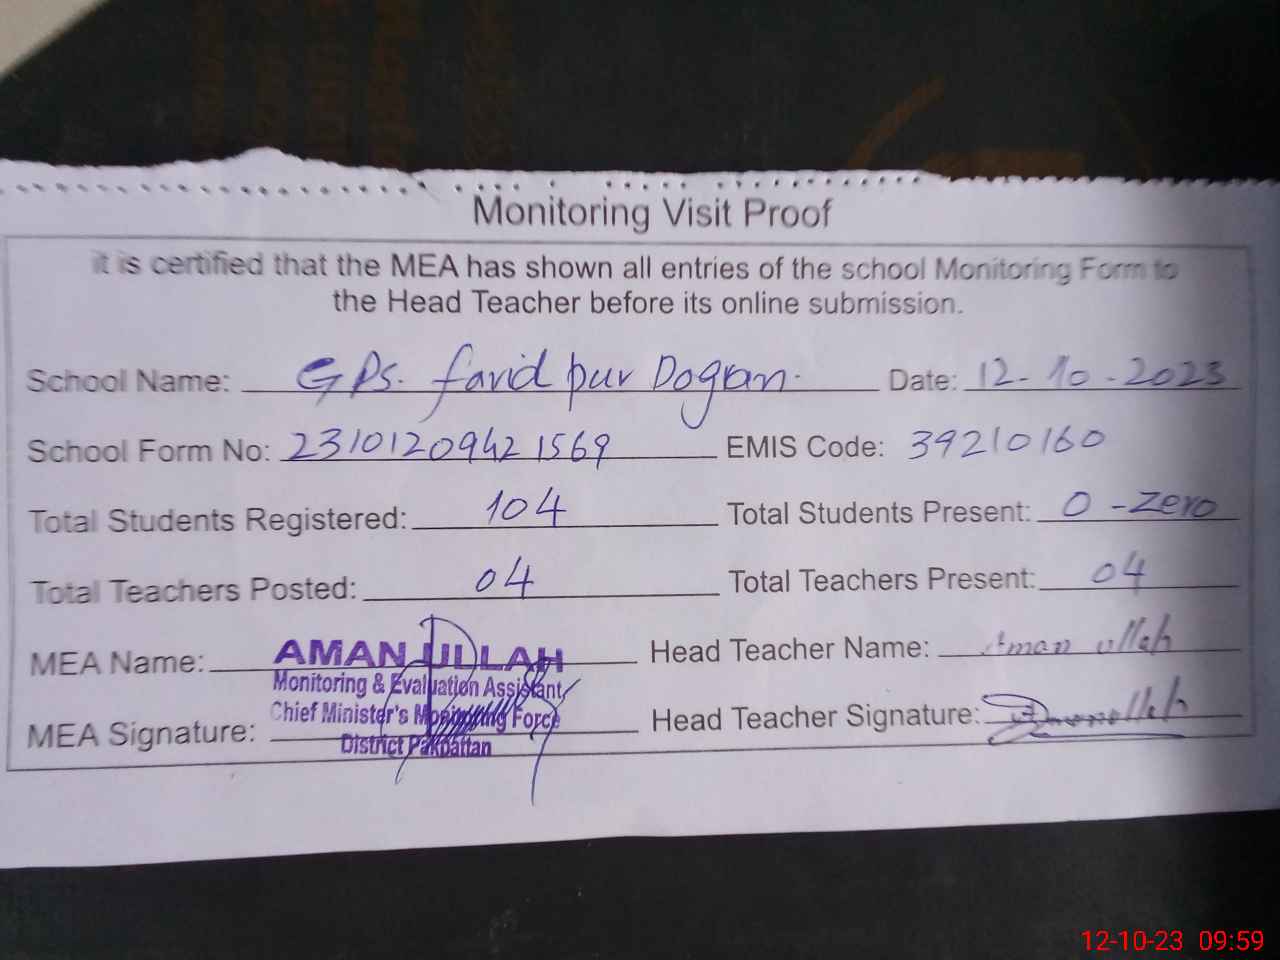 Monitoring Visit Proof
it is certified that the MEA has shown all entries of the school Monitoring Form to
the Head Teacher before its online submission.
School Name: GPS. farid pur Dogran. Date: 12-10-2023
School Form No: 23101209421569 EMIS Code: 39210160
Total Students Registered: 104 Total Students Present: 0 - Zero
Total Teachers Posted: 04 Total Teachers Present: 04
MEA Name: AMAN ULLAH Head Teacher Name: Aman ullah
Monitoring & Evaluation Assistant
Chief Minister's Monitoring Force
MEA Signature: Head Teacher Signature:
District Pakpattan
12-10-23 09:59